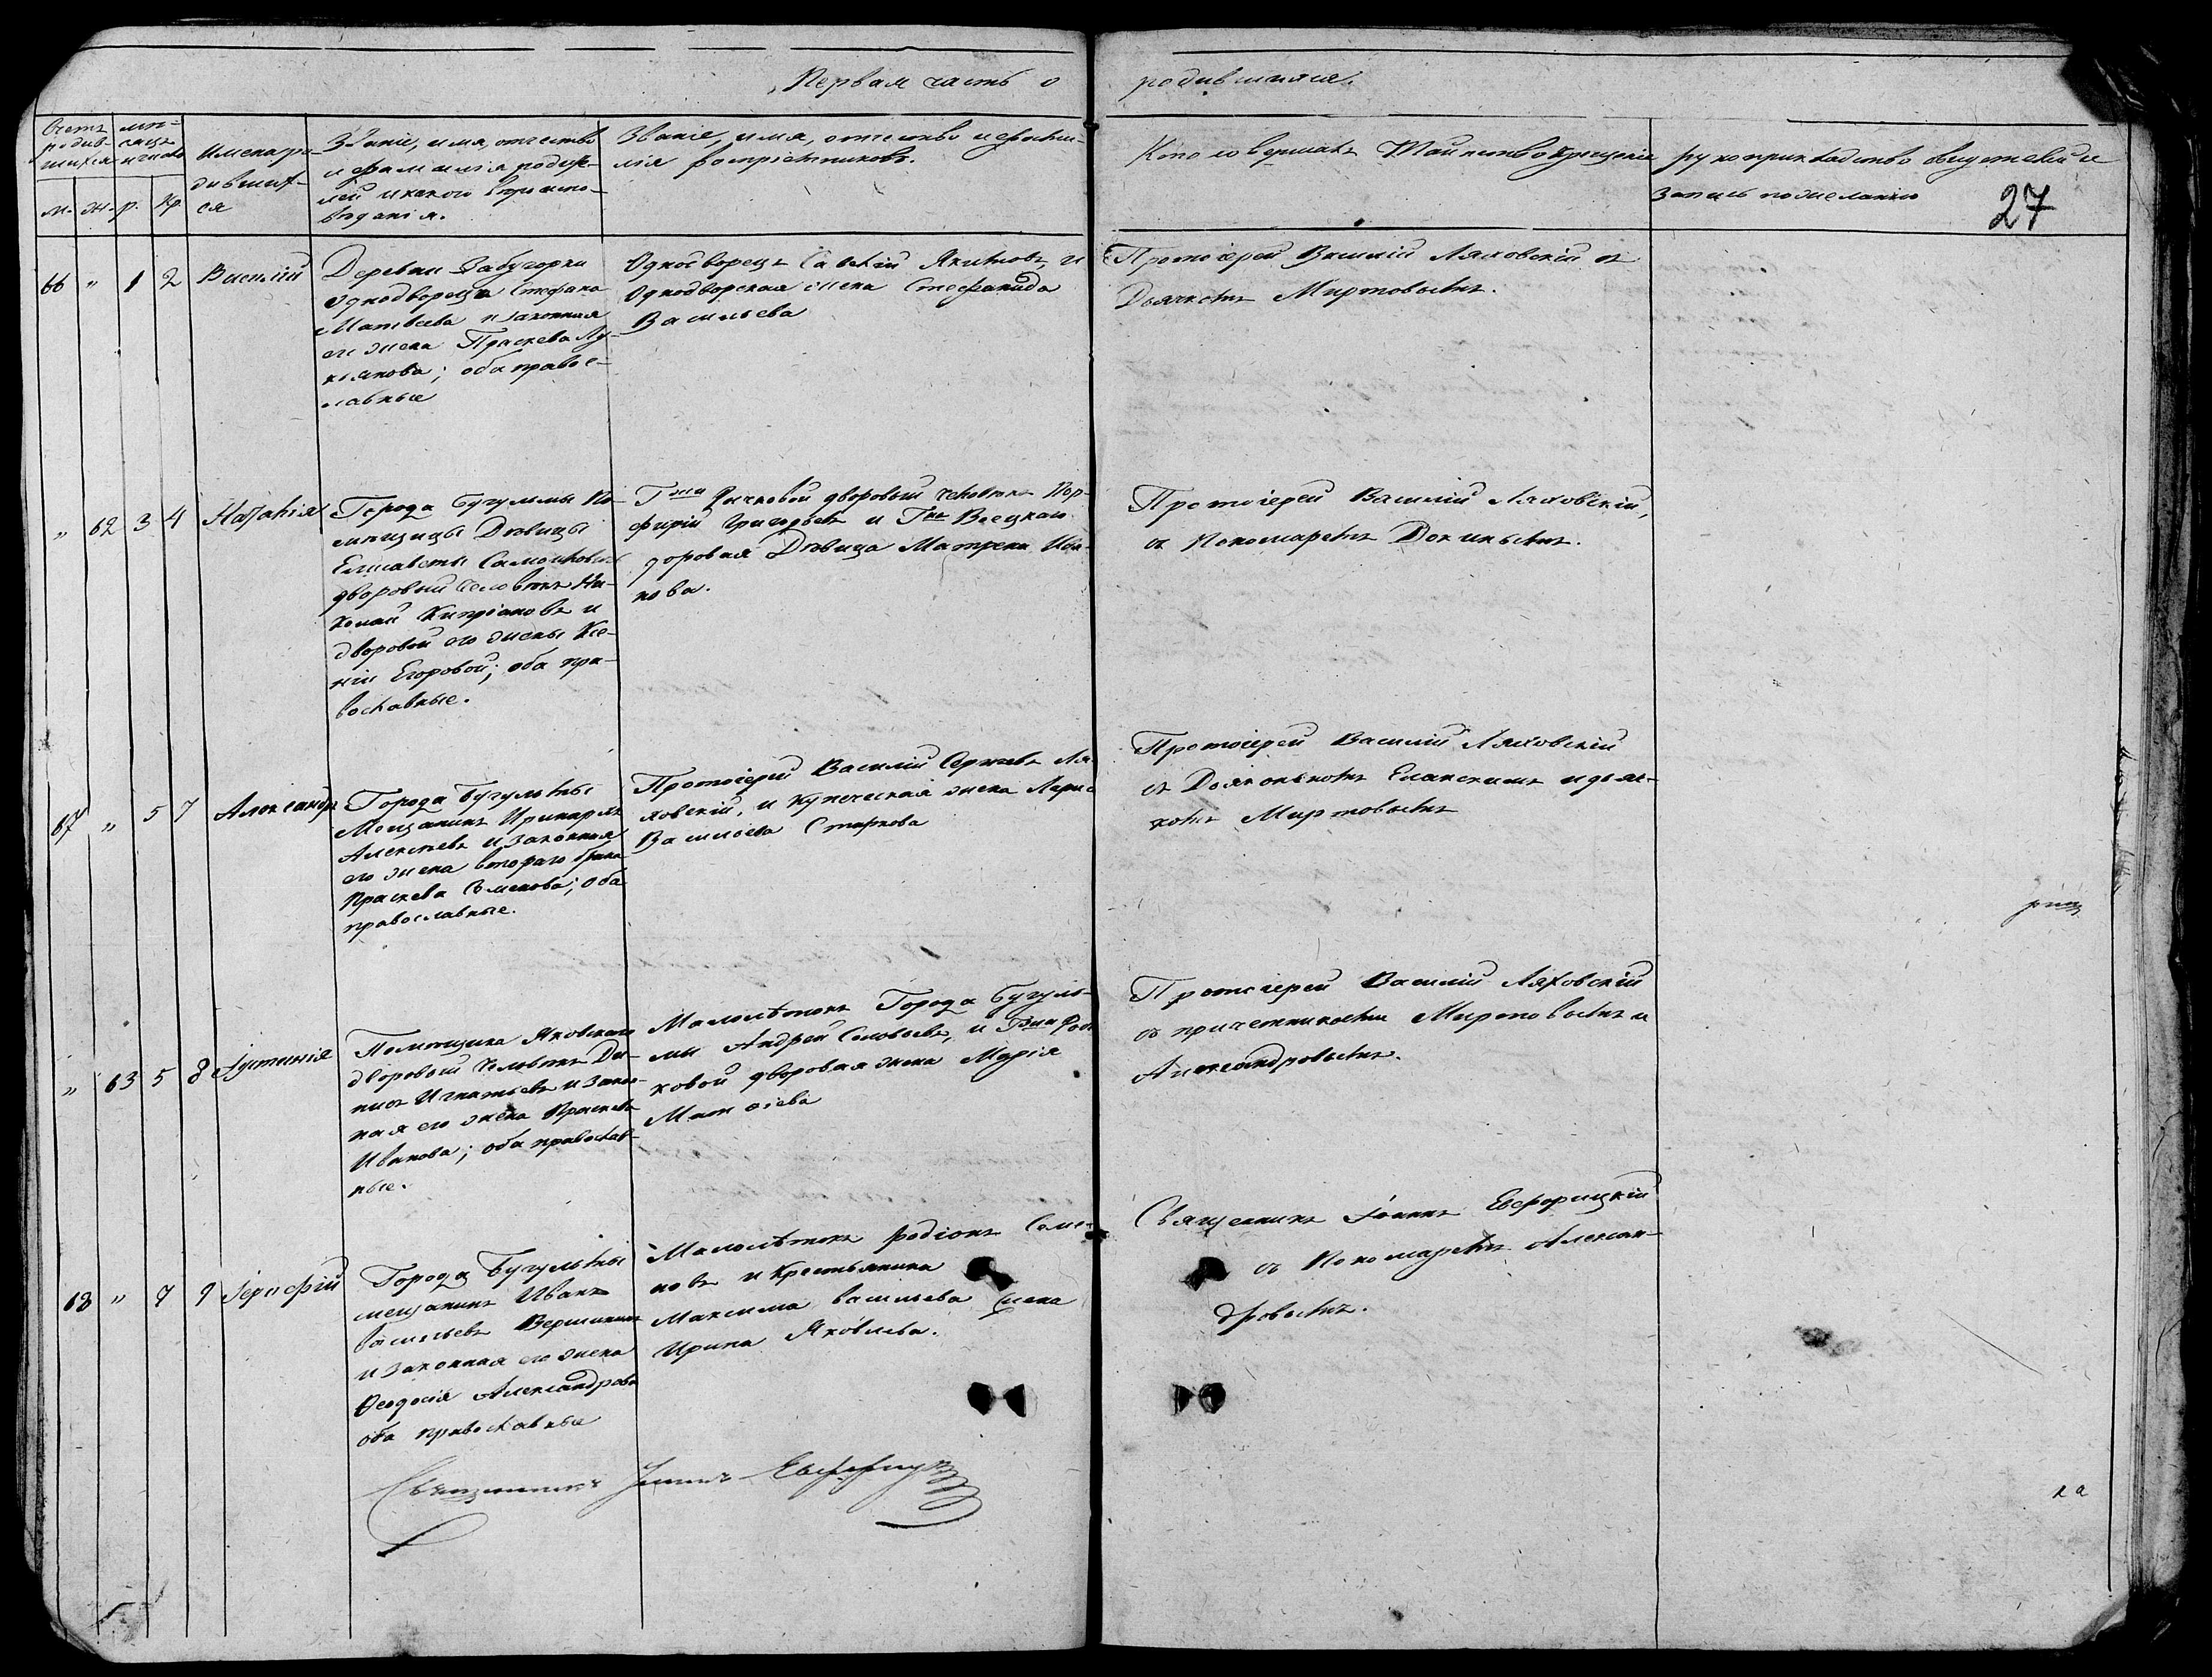 Первая часть о родившихся.
27
Счетъ родив-шихся
мѣ-сяцъ и число
м. ж. р. кр.
Имена ро-
дивших-
ся
Званіе, имя, отчество
и фамилія родите-
лей и какого вѣроиспо-
вѣданія.
Званіе, имя, отчество и фами-
лія воспріемниковъ.
Кто совершалъ Таинство крещенія
рукоприкладство свидетелей
запись по желанію
66 " 1 2 Василій
Деревни Забугорки
однодворецъ Стефана
Матвеева и законная
его жена Праскева Лу-
кьянова; оба правос-
лавные
Однодворецъ Савелій Якимовъ, и
Однодворская жена Стефанида
Васильева
Протоіерей Василій Ляховскій съ
Дьячкомъ Миртовымъ.
" 62 3 4 Наталія
Города Бугульмы По-
мѣщицы Дѣвицы
Елисаветы
дворовый человѣкъ Ни-
колай Кипріановъ и
дворовой его жены Ксе-
ніи Егоровой; оба пра-
вославные.
Гжи Рычковой дворовый человѣкъ Пор-
фирій Григорьевъ и Гна
доровая Дѣвица Матрена Ива-
нова.
Протоіерей Василій Ляховскій,
съ Пономаремъ
67 " 5 7 Александръ
Города Бугульмы
Мещанинъ Иринархъ
Алексѣевъ и законная
его жена втораго брака
Праскева Семенова; оба
православные.
Протоіерей Василій Сергѣевъ Ля-
ховскій, и купеческая жена Мария
Васильева Старкова
Протоіерей Василій Ляховскій
съ Дьякономъ Еланскимъ и дьяч-
комъ Миртовымъ
" 63 5 8 Іустинія
Помѣщика Яковскаго
дворовый человѣкъ Ди-
нисъ Игнатьевъ и закон-
ная его жена Праскева
Иванова; оба православ-
ные.
Малолѣтокъ Города Бугуль-
мы Андрей Соловьевъ, и Гжи
ковой дворовая жена Марія
Матвѣева
Протоіерей Василій Ляховскій
съ причетниками Миртовымъ и
Александровымъ.
68 " 7 9 Іерофій
Города Бугульмы
мещанинъ Иванъ
Васильевъ Вершининъ
и законная его жена
Ѳеодосія Александрова
оба православные
Малолѣтокъ Родіонъ Симо-
новъ и Крестьянина
Максима Васильева жена
Ирина Яковлева.
Священникъ Іоаннъ Евфорицкій
съ Пономаремъ Алексан-
дровымъ.
Священникъ Іоаннъ